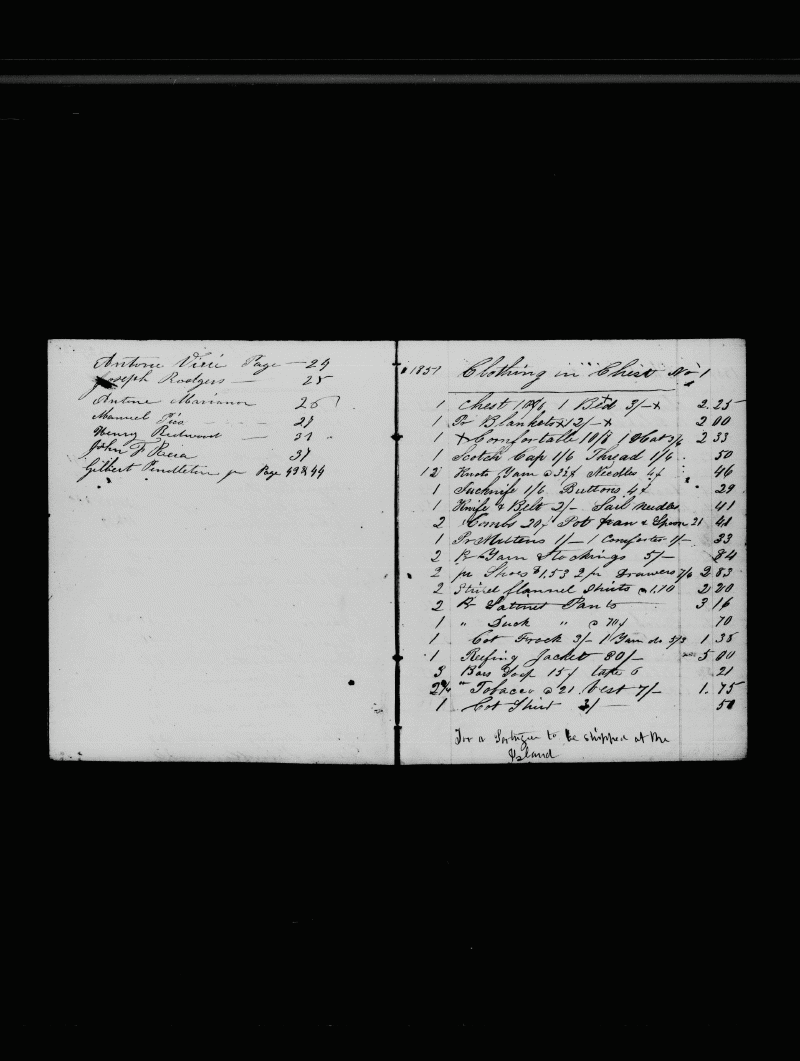 Antone Page — 24
Joseph Rodgers — 25
Antone Mariano 26
Manuel 27
Henry Redmond — 31
John F 37
Gilbert Pendleton jr Page 43 & 44
1851 Clothing in Chest No 1
1 Chest 10/6 1 Bed 3/- x 2.25
1 Pr Blankets x 12/- x 2 00
1 x Comfortable 10/8 1 Hat 3/6 2 33
1 Scotch Cap 1/6 Thread 1/6 50
12 Knots Yarn Needles 4¢ 46
1 1/6 Buttons 4¢ 29
1 Knife & Belt 2/- Sail Needles 41
2 Combs 20¢ Pot Pan & Spoon 21 41
1 Pr Mittens 1/- 1 Comforter 1/- 33
2 Pr Yarn Stockings 5/- 84
2 pr Shoes $1.53 2 pr Drawers 7/6 2 83
2 Striped flannel Shirts @ 1.10 2 20
2 Pr Satinet Pants 3 16
1 " Duck " @ 70¢ 70
1 Cot Frock 3/- 1 Yarn do 5/3 1 38
1 Reefing Jacket 30/- 5 00
3 Bars Soap 15¢ tape 6 21
2¾ " Tobacco @ 21 Vest 7/- 1.75
1 Cot Shirt 3/- 50
For a to be shipped at the
Island